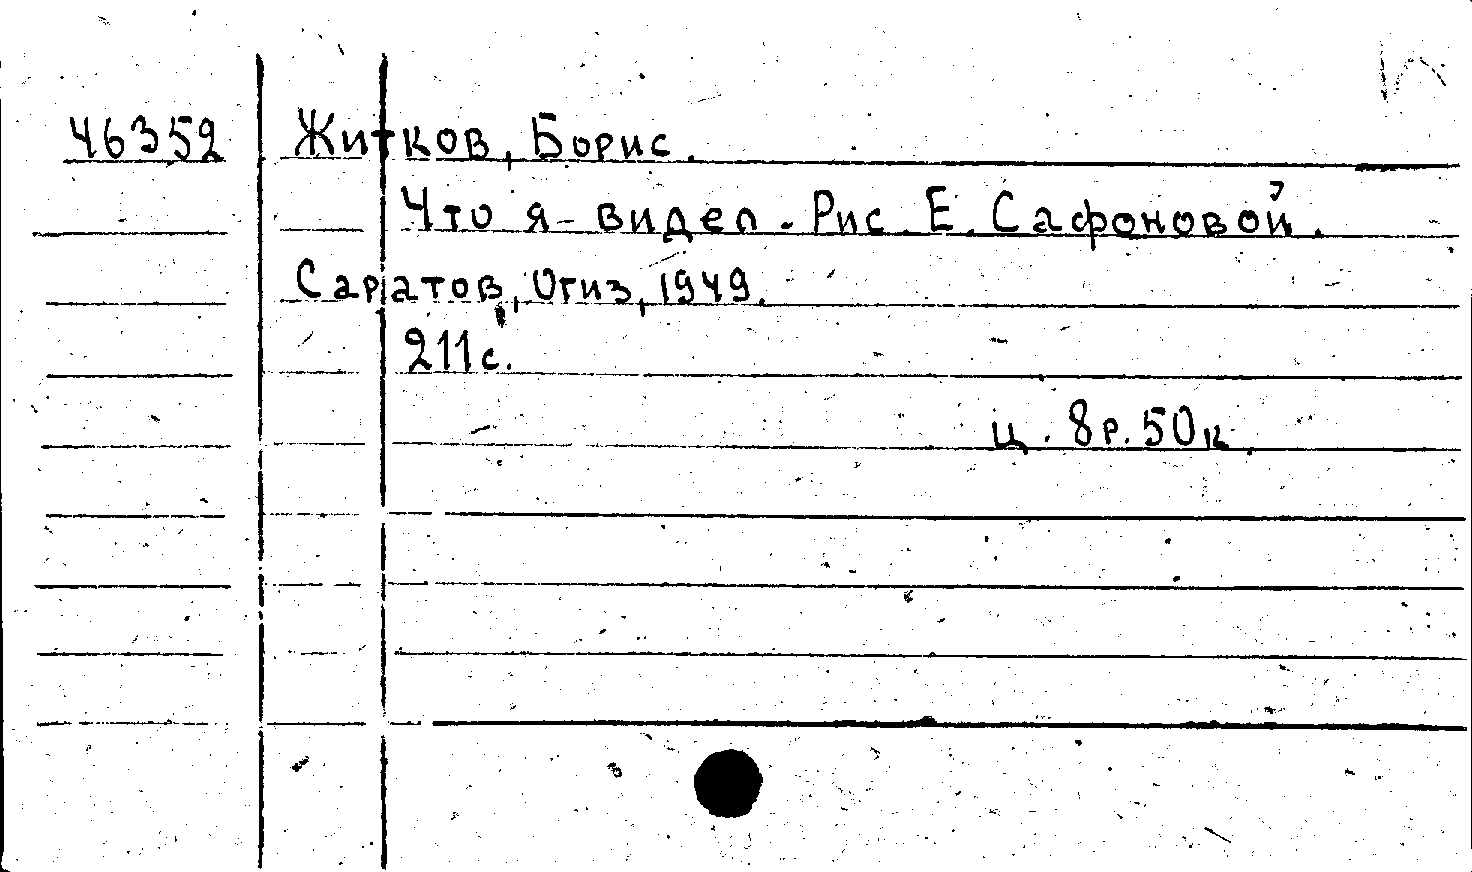 46352 Житков, Борис.
Что я видел. Рис. Е. Сафоновой.
Саратов, Огиз, 1949.
211с.
ц. 8р.50к.